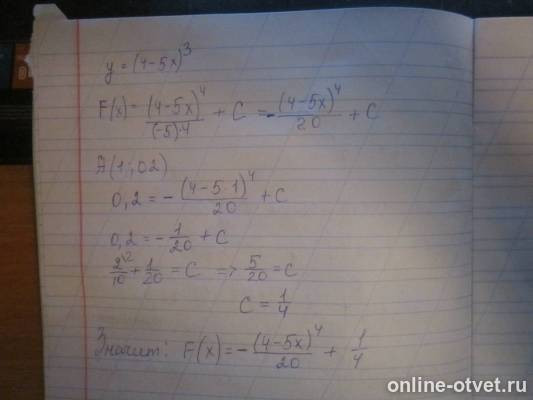 y = (4-5x)^3
F(x) = (4-5x)^4/((-5)·4) + C = -(4-5x)^4/20 + C
A(1; 0,2)
0,2 = -(4-5·1)^4/20 + C
0,2 = -1/20 + C
2\2/10 + 1/20 = C => 5/20 = C
C = 1/4
Значит: F(x) = -(4-5x)^4/20 + 1/4
online-otvet.ru